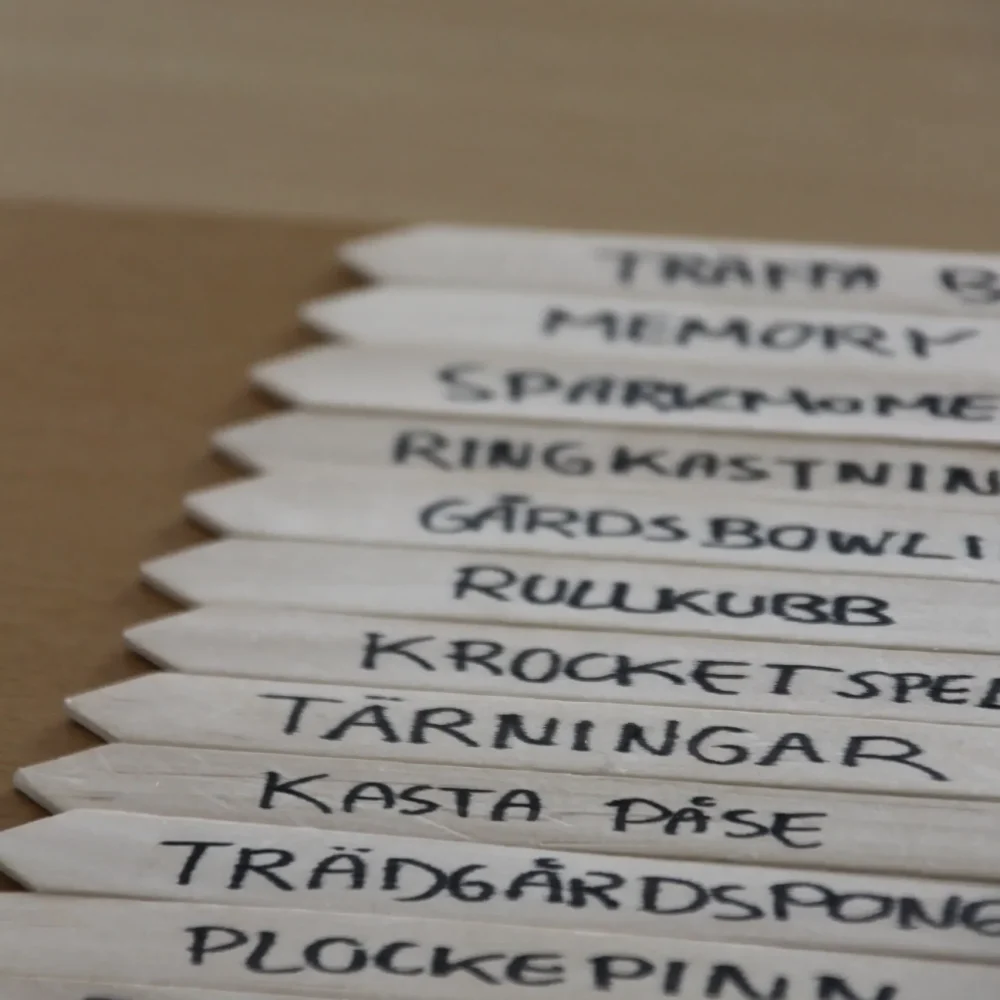 TRÄFFA B
MEMORY
SPARKMOME
RINGKASTNIN
GÅRDSBOWLI
RULLKUBB
KROCKETSPEL
TÄRNINGAR
KASTA PÅSE
TRÄDGÅRDSPONG
PLOCKEPINN